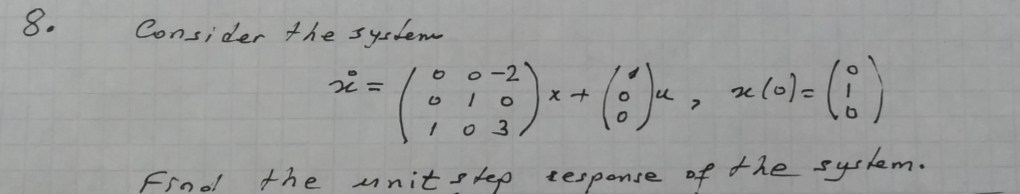 8. Consider the system
ẋ = ( 0 0 -2
0 1 0
1 0 3 ) x + ( 1
0
0 ) u , x(0) = ( 0
1
0 )
Find the unit step response of the system.